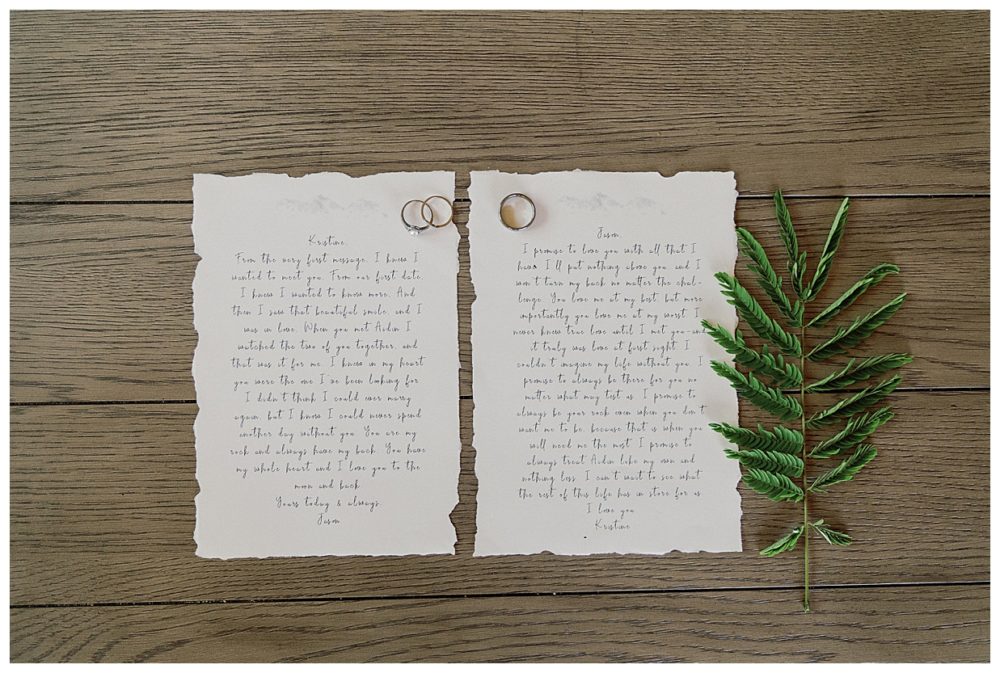 Kristine,
From the very first message, I knew I
wanted to meet you. From our first date,
I knew I wanted to know more. And
then I saw that beautiful smile, and I
was in love. When you met Aidin I
watched the two of you together, and
that was it for me. I knew in my heart
you were the one I've been looking for.
I didn't think I could ever marry
again, but I know I could never spend
another day without you. You are my
rock and always have my back. You have
my whole heart and I love you to the
moon and back.
Yours today & always,
Jason
Jason,
I promise to love you with all that I
have. I'll put nothing above you, and I
won't turn my back no matter the chal-
lenge. You love me at my best, but more
importantly you love me at my worst. I
never knew true love until I met you-and
it truly was love at first sight. I
couldn't imagine my life without you. I
promise to always be there for you no
matter what may test us. I promise to
always be your rock even when you don't
want me to be, because that is when you
will need me the most. I promise to
always treat Aidin like my own and
nothing less. I can't wait to see what
the rest of this life has in store for us.
I love you
Kristine